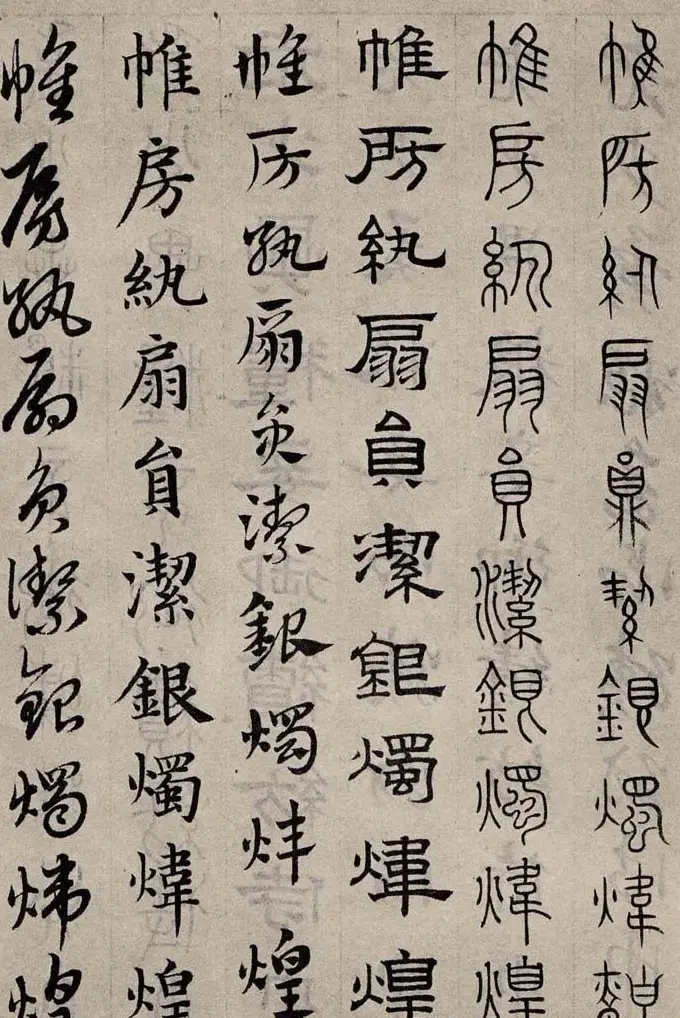 帷房紈扇員絜銀燭煒
帷房紈扇員潔銀燭煒煌
帷房紈扇員潔銀燭煒煌
帷房紈扇員潔銀燭煒煌
帷房紈扇員潔銀燭煒煌
帷房紈扇員潔銀燭煒煌